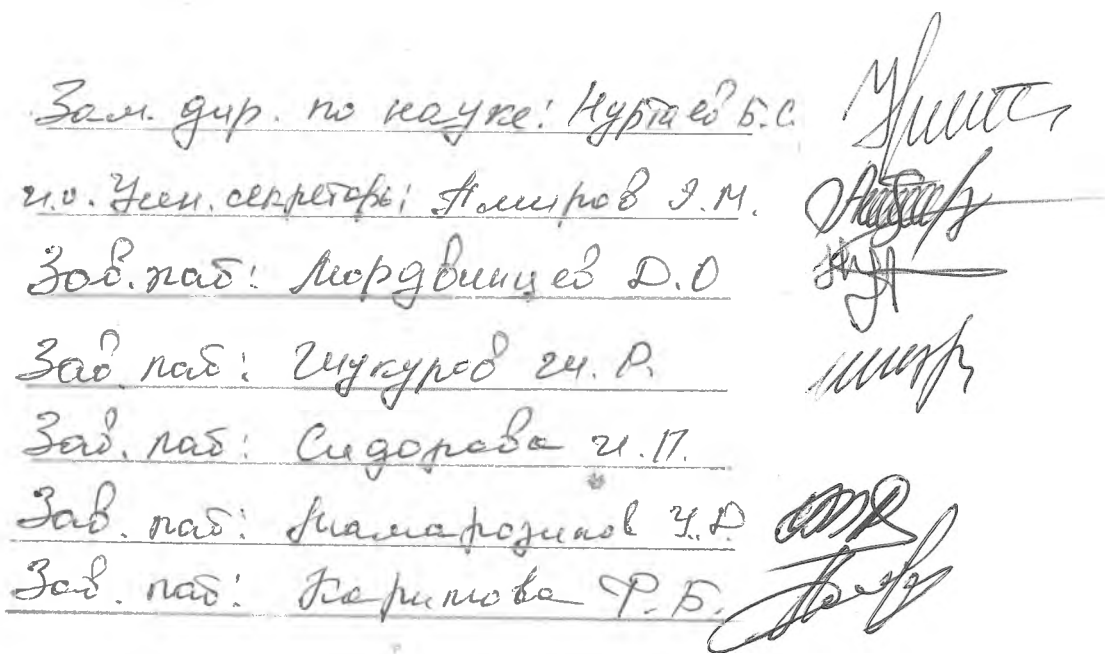 Зам. дир. по науке: Нуртаев Б.С.
и.о. Учен. секретарь: Амиров Э.М.
Зав. лаб: Мордвинцев Д.О
Зав. лаб: Шукуров Ш. Р.
Зав. лаб: Сидорова И.П.
Зав. лаб: Мамарозиков У.Д.
Зав. лаб: Каримова Ф.Б.